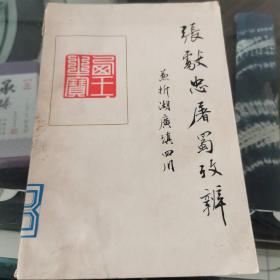 張獻忠屠蜀攷辨
兼析湖廣填四川